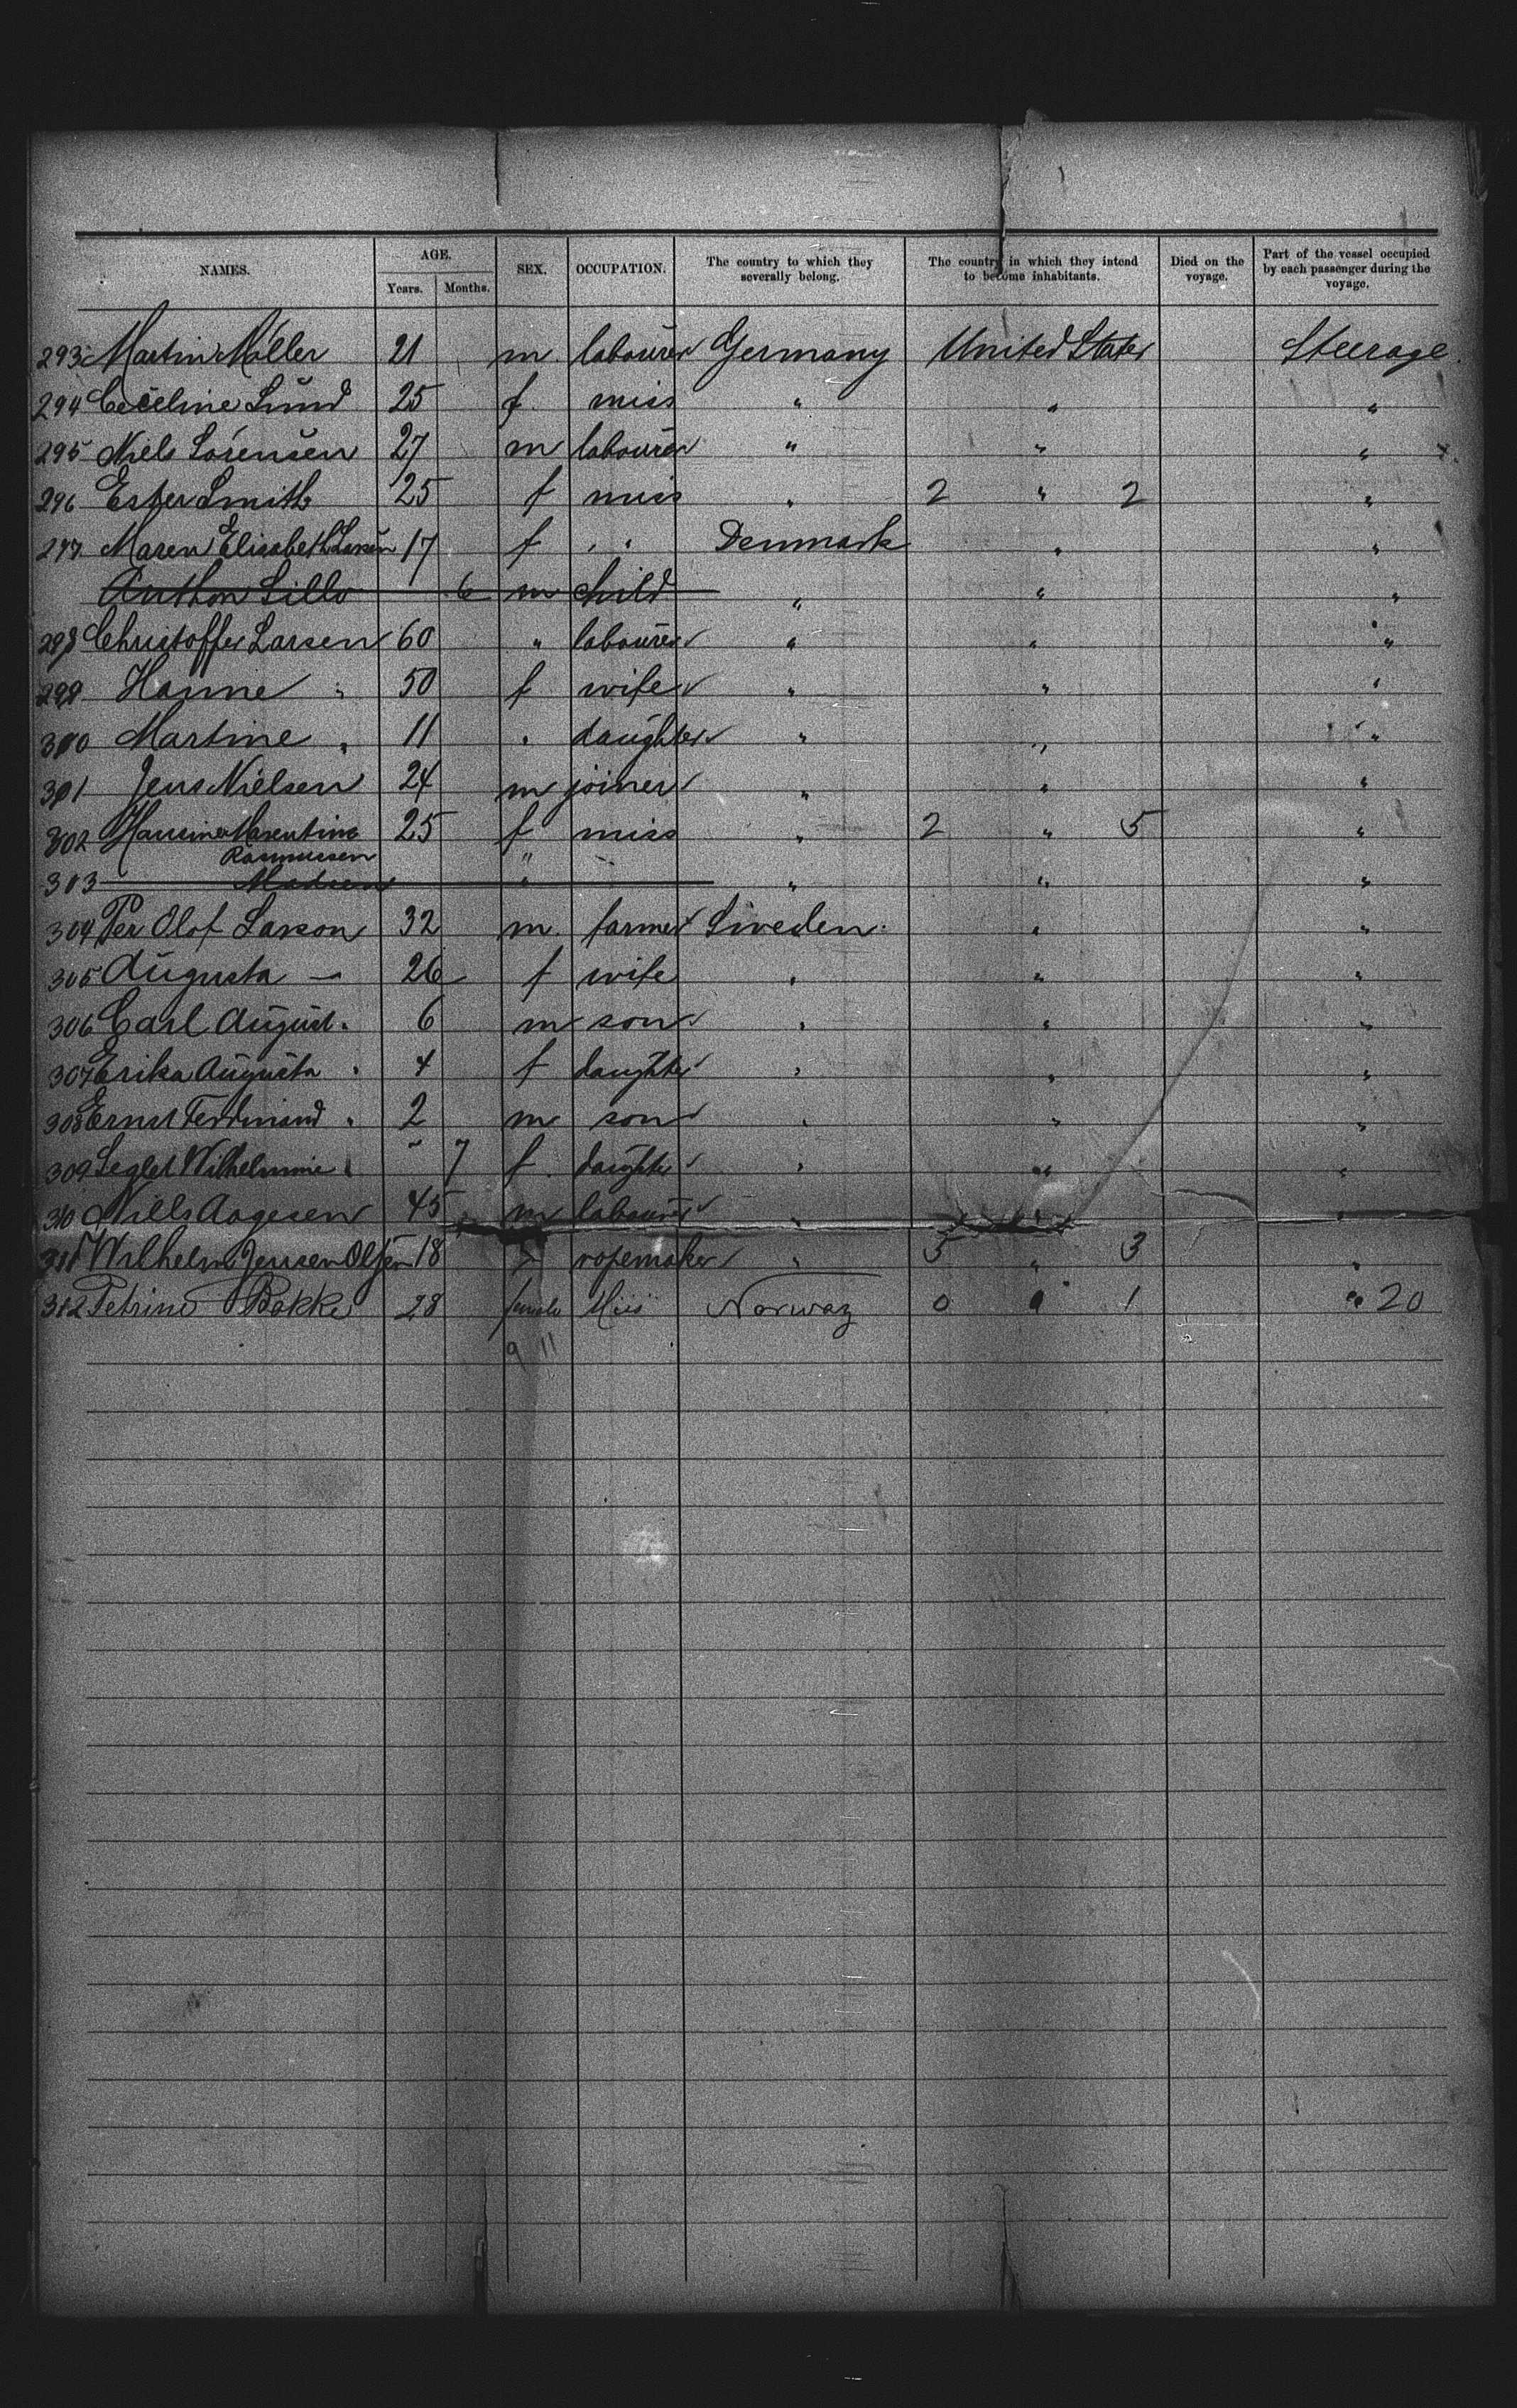 NAMES. AGE. SEX. OCCUPATION. The country to which they severally belong. The country in which they intend to become inhabitants. Died on the voyage. Part of the vessel occupied by each passenger during the voyage.
Years. Months.
293 Martin Möller 21 m labourer Germany United States Steerage.
294 Ceceline Lund 25 f. miss " " "
295 Niels Sörensen 27 m labourer " " "
296 Ester Smith 25 f miss " 2 " 2 "
297 Maren Elisabeth Larsen 17 f " Denmark " "
Anthon Lillo 6 m child " " "
298 Christoffer Larsen 60 " labourer " " "
299 Hanne " 50 f wife " " "
300 Martine " 11 " daughter " " "
301 Jens Nielsen 24 m joiner " " "
302 Hansine Marentine 25 f miss " 2 " 5 "
Rasmussen "
303 Madsen " " " "
304 Per Olof Larson 32 m. farmer Sweden. " "
305 Augusta — 26 f wife " " "
306 Carl August " 6 m son " " "
307 Erika Augusta " 4 f daughter " " "
308 Ernst Ferdinand " 2 m son " " "
309 Wilhelmine " - 7 f. daughter " " "
310 Nills Aagesen 45 m labourer " " "
311 Wilhelm Jensen Olsen 18 " ropemaker " 5 " 3 "
312 Petrine Bakke 28 female Miss Norway 0 " 1 " 20
9 11